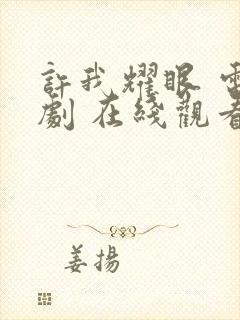 許我耀眼 電
劇 在綫觀看
姜揚